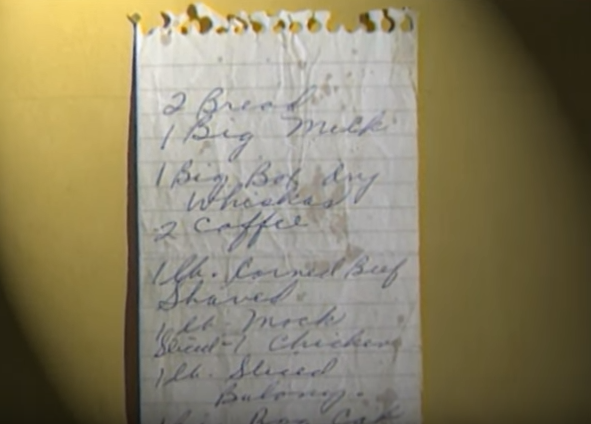 2 Bread
1 Big Milk
1 Big Box dry
Whiskas
2 Coffee
1 lb. Corned Beef
Shaved
1 lb. Mock
Sliced - 1 Chicken
1 lb. Sliced
Balony.
Box Cat